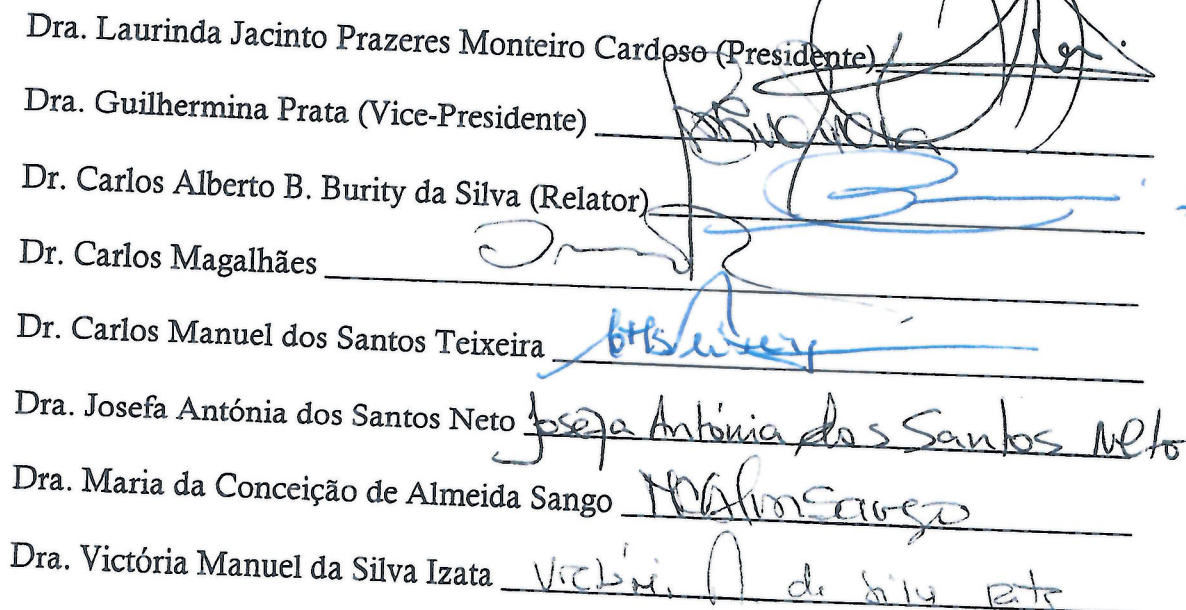 Dra. Laurinda Jacinto Prazeres Monteiro Cardoso (Presidente)
Dra. Guilhermina Prata (Vice-Presidente)
Dr. Carlos Alberto B. Burity da Silva (Relator)
Dr. Carlos Magalhães
Dr. Carlos Manuel dos Santos Teixeira
Dra. Josefa Antónia dos Santos Neto Josefa Antónia dos Santos Neto
Dra. Maria da Conceição de Almeida Sango
Dra. Victória Manuel da Silva Izata